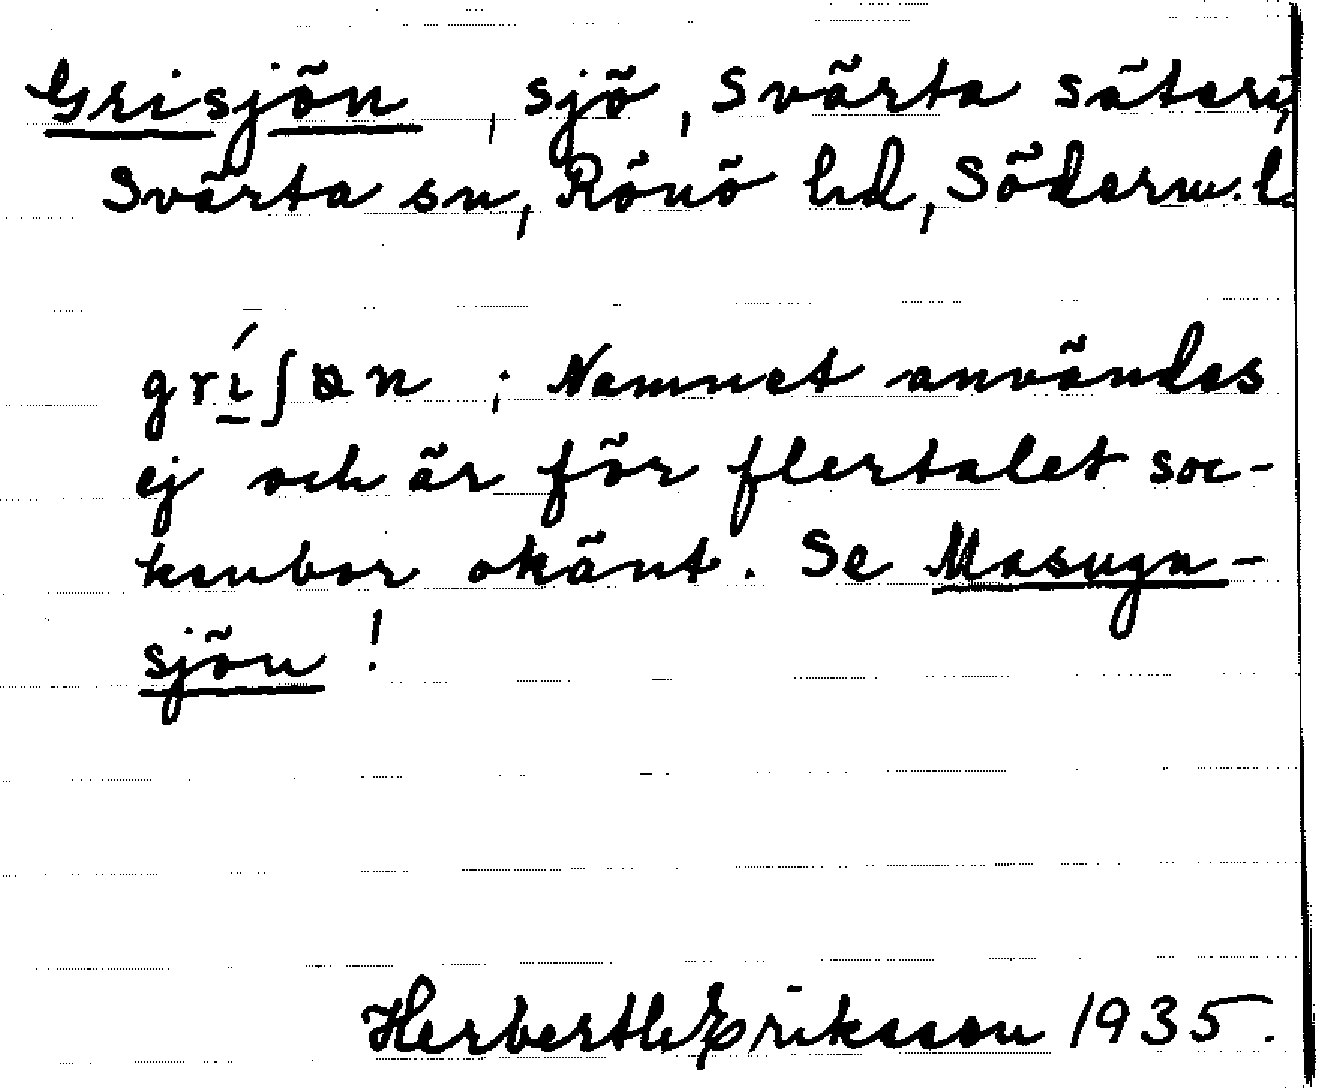 Grisjön, sjö, Svärta säteri,
Svärta sn, Rönö hd, Söderm. l.
grí̠ʃɷn ; Namnet användes
ej och är för flertalet soc-
kenbor okänt. Se Masugn-
sjön !
Herberth Eriksson 1935.